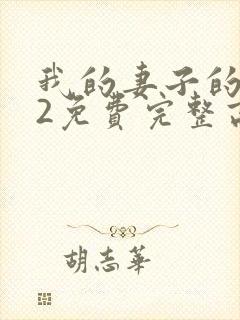 我的妻子的
2免费完整
胡志華